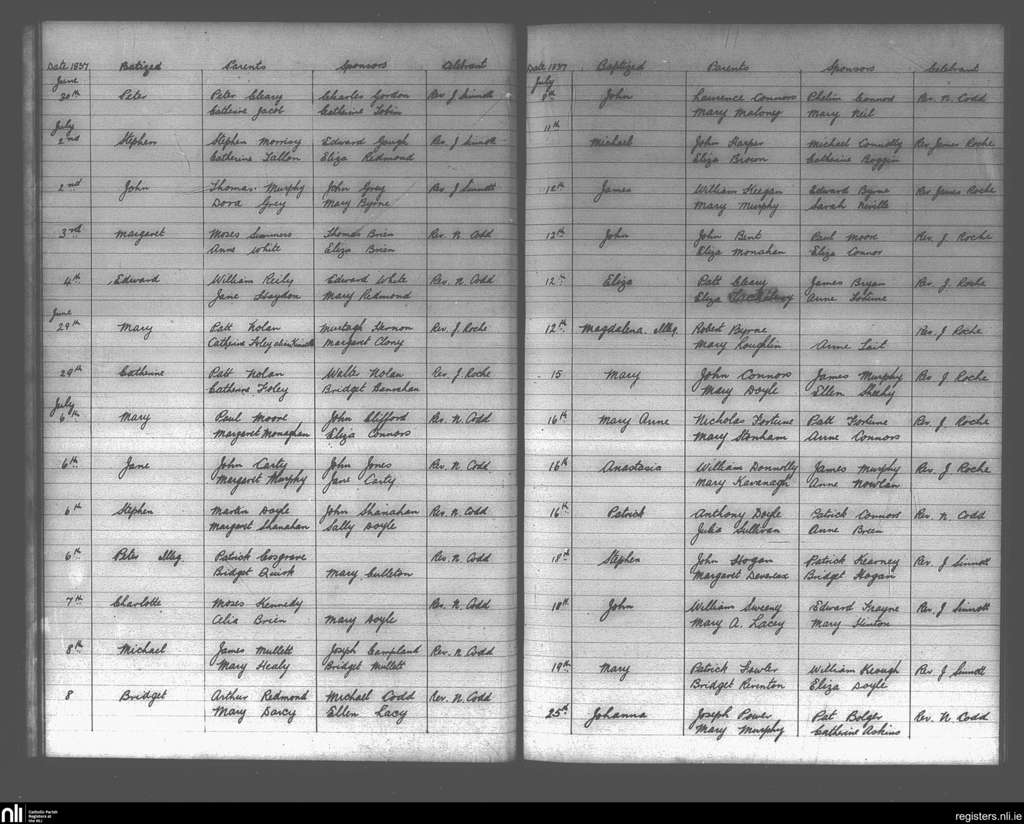 Date 1837 Batized Parents Sponsors Celebrant
June
30th Peter Peter Cleary Charles Gordon Rev. J Sinnott
Catherine Jacob Catherine Tobin
July
2nd Stephen Stephen Morrisy Edward Gough Rev. J Sinnott
Catherine Tallon Eliza Redmond
2nd John Thomas Murphy John Grey Rev. J Sinnott
Dora Grey Mary Byrne
3rd Margaret Moses Summers Thomas Brien Rev. N. Codd
Anne White Eliza Brien
4th Edward William Reily Edward White Rev. N. Codd
Jane Haydon Mary Redmond
June
29th Mary Patt Nolan Murtagh Hernon Rev. J. Roche
Catherine Foley alias Margaret Clony
29th Catherine Patt Nolan Walter Nolan Rev. J. Roche
Catherine Foley Bridget
July
6th Mary Paul Moore John Clifford Rev. N. Codd
Margaret Monaghan Eliza Connors
6th Jane John Carty John Jones Rev. N. Codd
Margaret Murphy Jane Carty
6th Stephen Martin Doyle John Shanahan Rev. N. Codd
Margaret Shanahan Sally Doyle
6th Peter Illeg. Patrick Cosgrave Rev. N. Codd
Bridget Quirk Mary Culleton
7th Charlotte Moses Kennedy Rev. N. Codd
Alia Brien Mary Doyle
8th Michael James Mullett Joseph Campland Rev. N. Codd
Mary Healy Bridget Mullett
8 Bridget Arthur Redmond Michael Codd Rev. N. Codd
Mary Darcy Ellen Lacy
Date 1837 Baptized Parents Sponsors Celebrant
July
8th John Laurence Connors Phelim Connors Rev. N. Codd
Mary Maloney Mary Neil
11th
Michael John Harper Michael Connolly Rev James Roche
Eliza Brown Catherine Boggin
12th James William Keegan Edward Byrne Rev James Roche
Mary Murphy Sarah Neville
12th John John Bent Paul Moore Rev. J Roche
Eliza Monahan Eliza Connor
12th Eliza Patt Cleary James Bryan Rev. J Roche
Eliza Anne Fortune
12th Magdalena. Illeg. Robert Byrne Rev. J Roche
Mary Loughlin Anne Tait
15 Mary John Connors James Murphy Rev. J Roche
Mary Doyle Ellen Sheehy
16th Mary Anne Nicholas Fortune Patt Fortune Rev. J. Roche
Mary Stonham Anne Connors
16th Anastasia William Donnolly James Murphy Rev. J Roche
Mary Kavanagh Anne Nowlan
16th Patrick Anthony Doyle Patrick Connors Rev. N. Codd
Julia Sullivan Anne Breen
18th Stephen John Hogan Patrick Kearney Rev. J Sinnott
Margaret Devereax Bridget Hogan
18th John William Sweeny Edward Frayne Rev. J Sinnott
Mary A. Lacey Mary Henton
19th Mary Patrick Fowler William Keough Rev. J Sinnott
Bridget Rirenton Eliza Doyle
25th Johanna Joseph Power Pat Bolger Rev. N. Codd
Mary Murphy Catherine Askins
nli Catholic Parish
Registers at
the NLI
registers.nli.ie